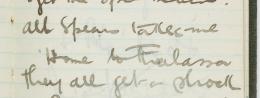 get the
all Spears takes me
Home to Thalassa
they all get a shock